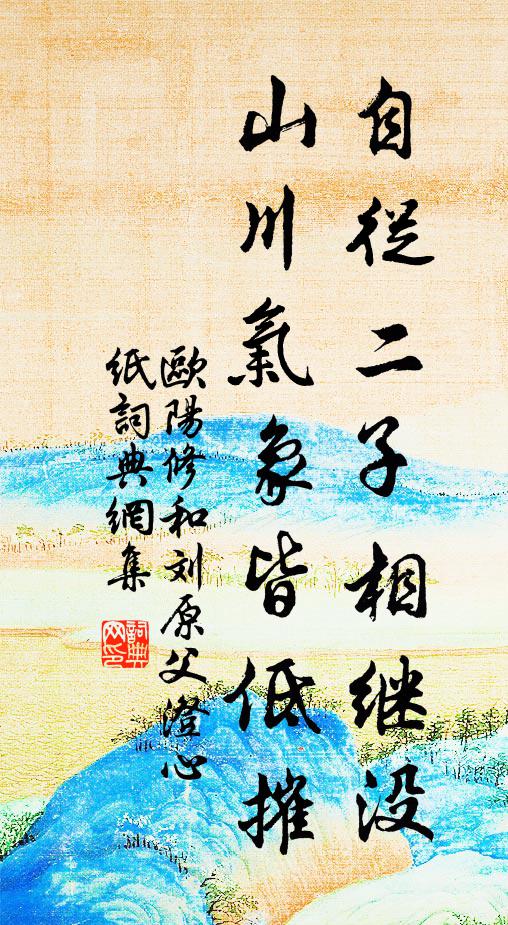 自從二子相继没
山川氣象皆低摧
歐陽修和刘原父澄心
纸詞典網集
詞典
网印